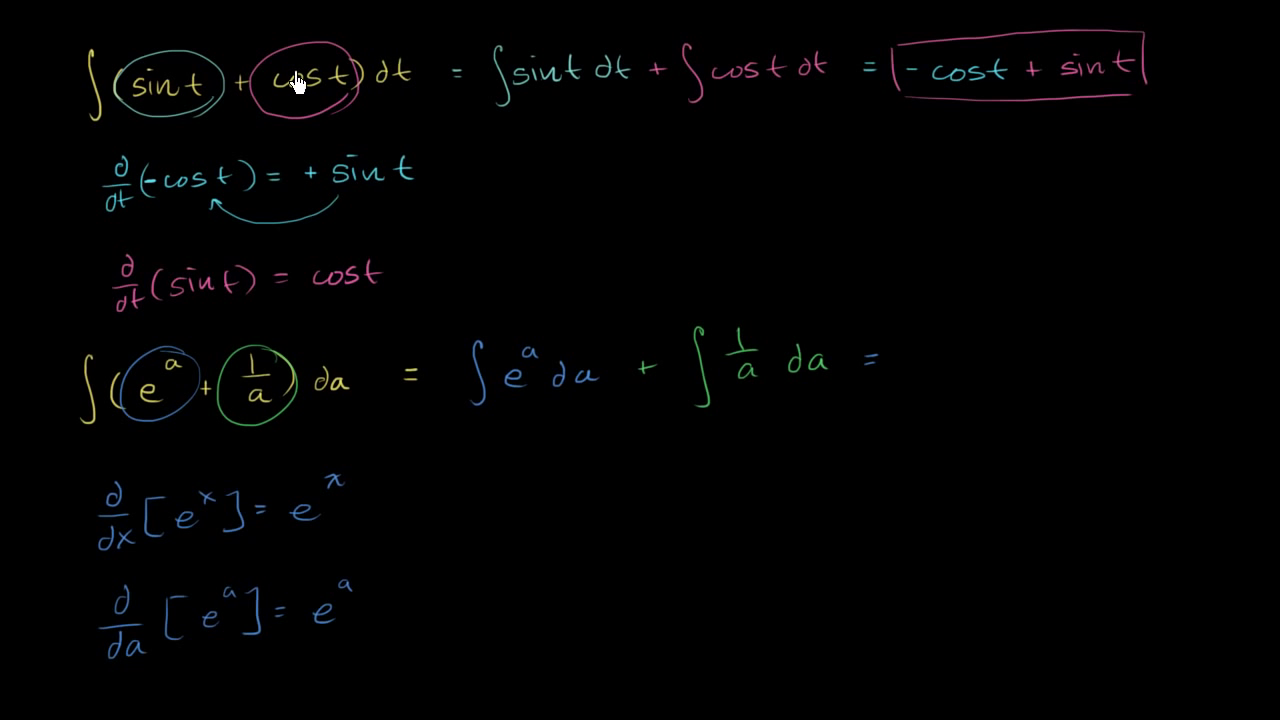 ∫(sin t + cos t) dt = ∫sin t dt + ∫cos t dt = - cos t + sin t
d/dt(-cos t) = + sin t
d/dt(sin t) = cos t
∫(e^a + 1/a) da = ∫e^a da + ∫1/a da =
d/dx[e^x] = e^x
d/da[e^a] = e^a